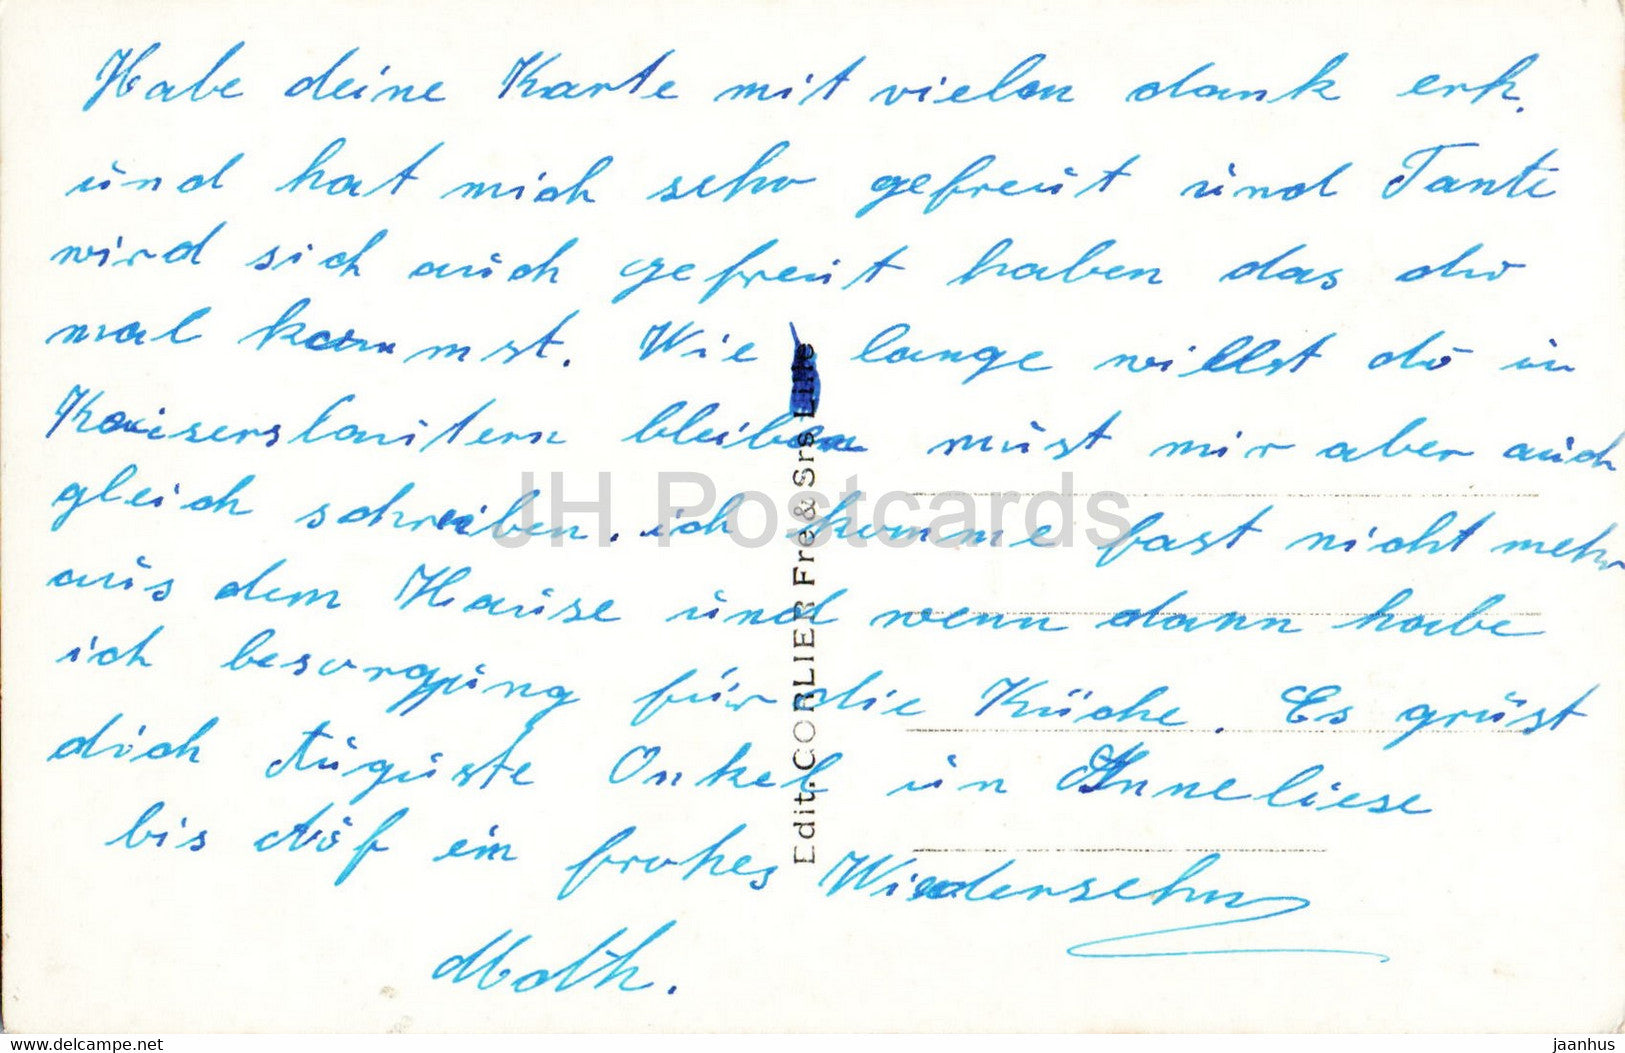 Habe deine Karte mit vielen dank erh.
und hat mich sehr gefreut und Tante
wird sich auch gefreut haben das du
mal kommst. Wie lange willst du in
Kaiserslautern bleiben müst mir aber auch
gleich schreiben. ich komme fast nicht mehr
aus dem Hause und wenn dann habe
ich besorgung für die Küche. Es grüst
dich Auguste Onkel un Anneliese
bis Auf ein frohes Wiedersehn
Math.
Edit. CORLIER Fre & Srs Lille
JH Postcards
delcampe.net
jaanhus